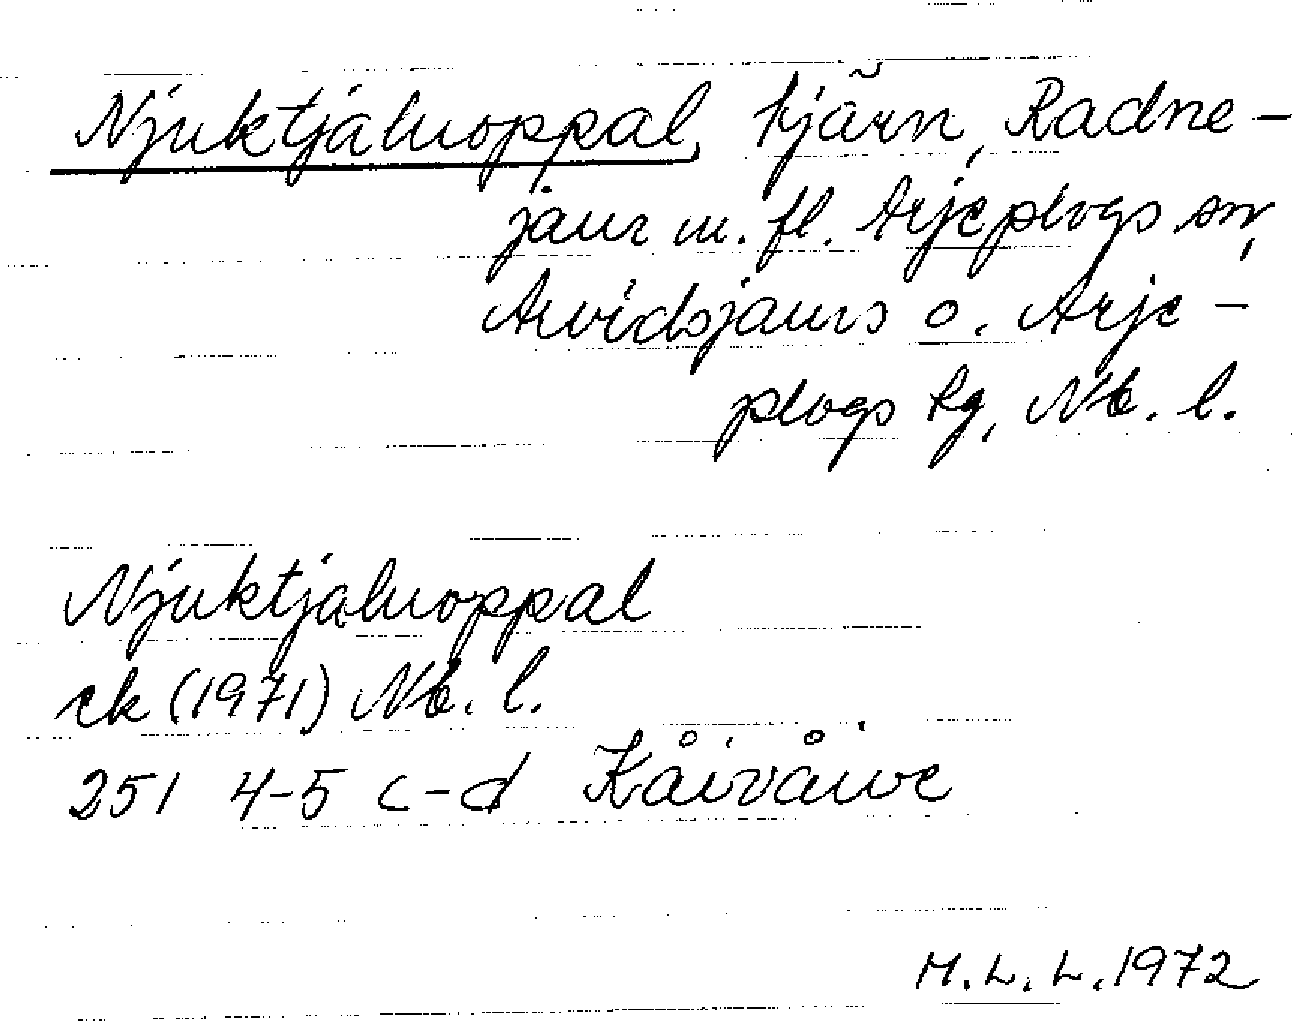 Njuktjaluoppal, tjärn, Radne-
jaur m. fl. Arjeplogs sn,
Arvidsjaurs o. Arje-
plogs tg, Nb. l.
Njuktjaluoppal
ek (1971) Nb. l.
251 4-5 c-d Kåivåive
M.L.L. 1972